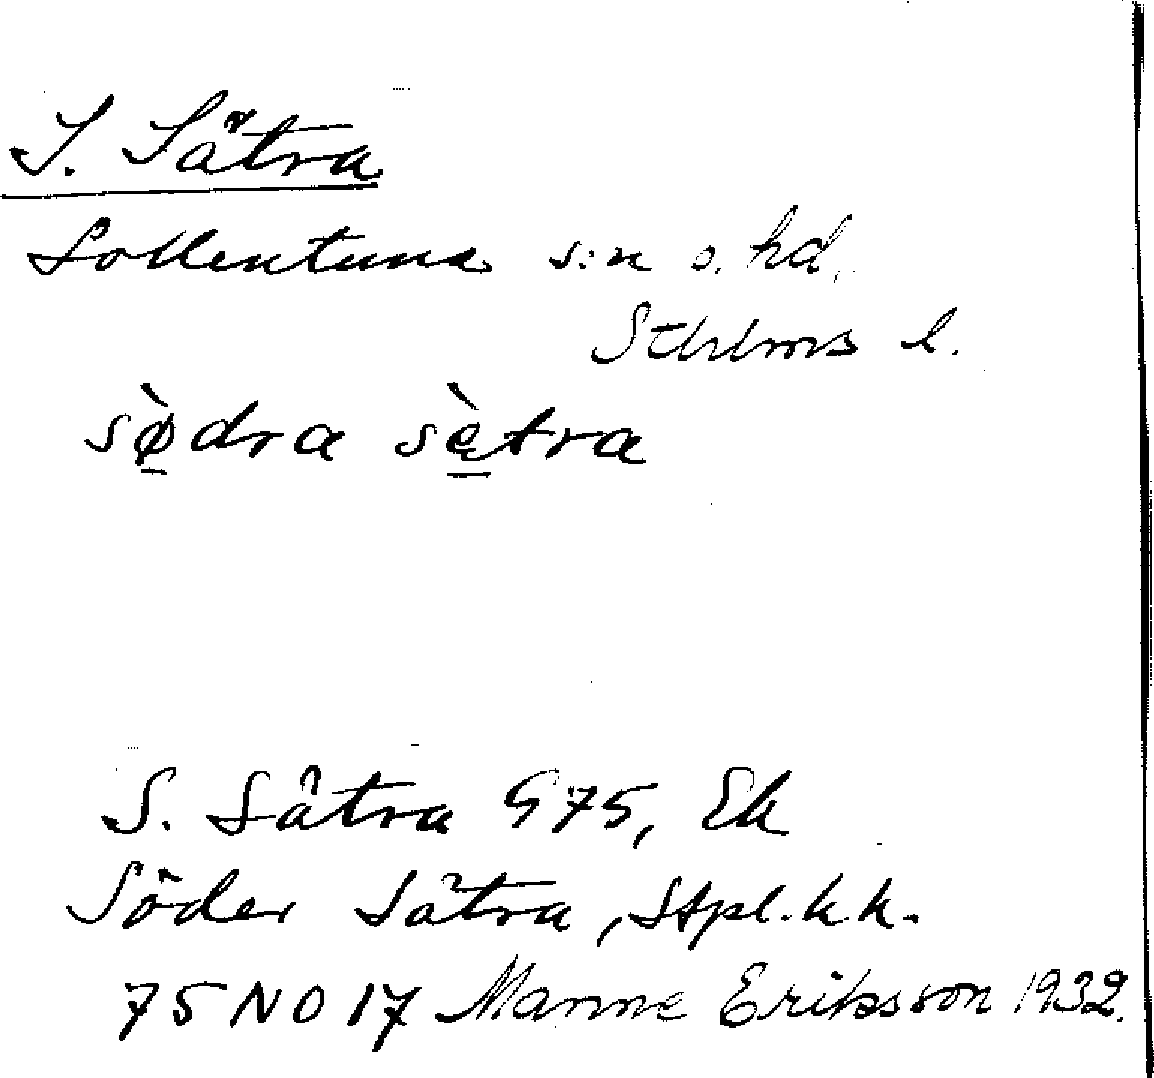 S. Sätra
Sollentuna s:n o. hd.
Sthlms l.
sø̀dra sę̀tra
S. Sätra G75, Ek
Söder Sätra, Stpl. kk.
75 NO 17 Manne Eriksson 1932.